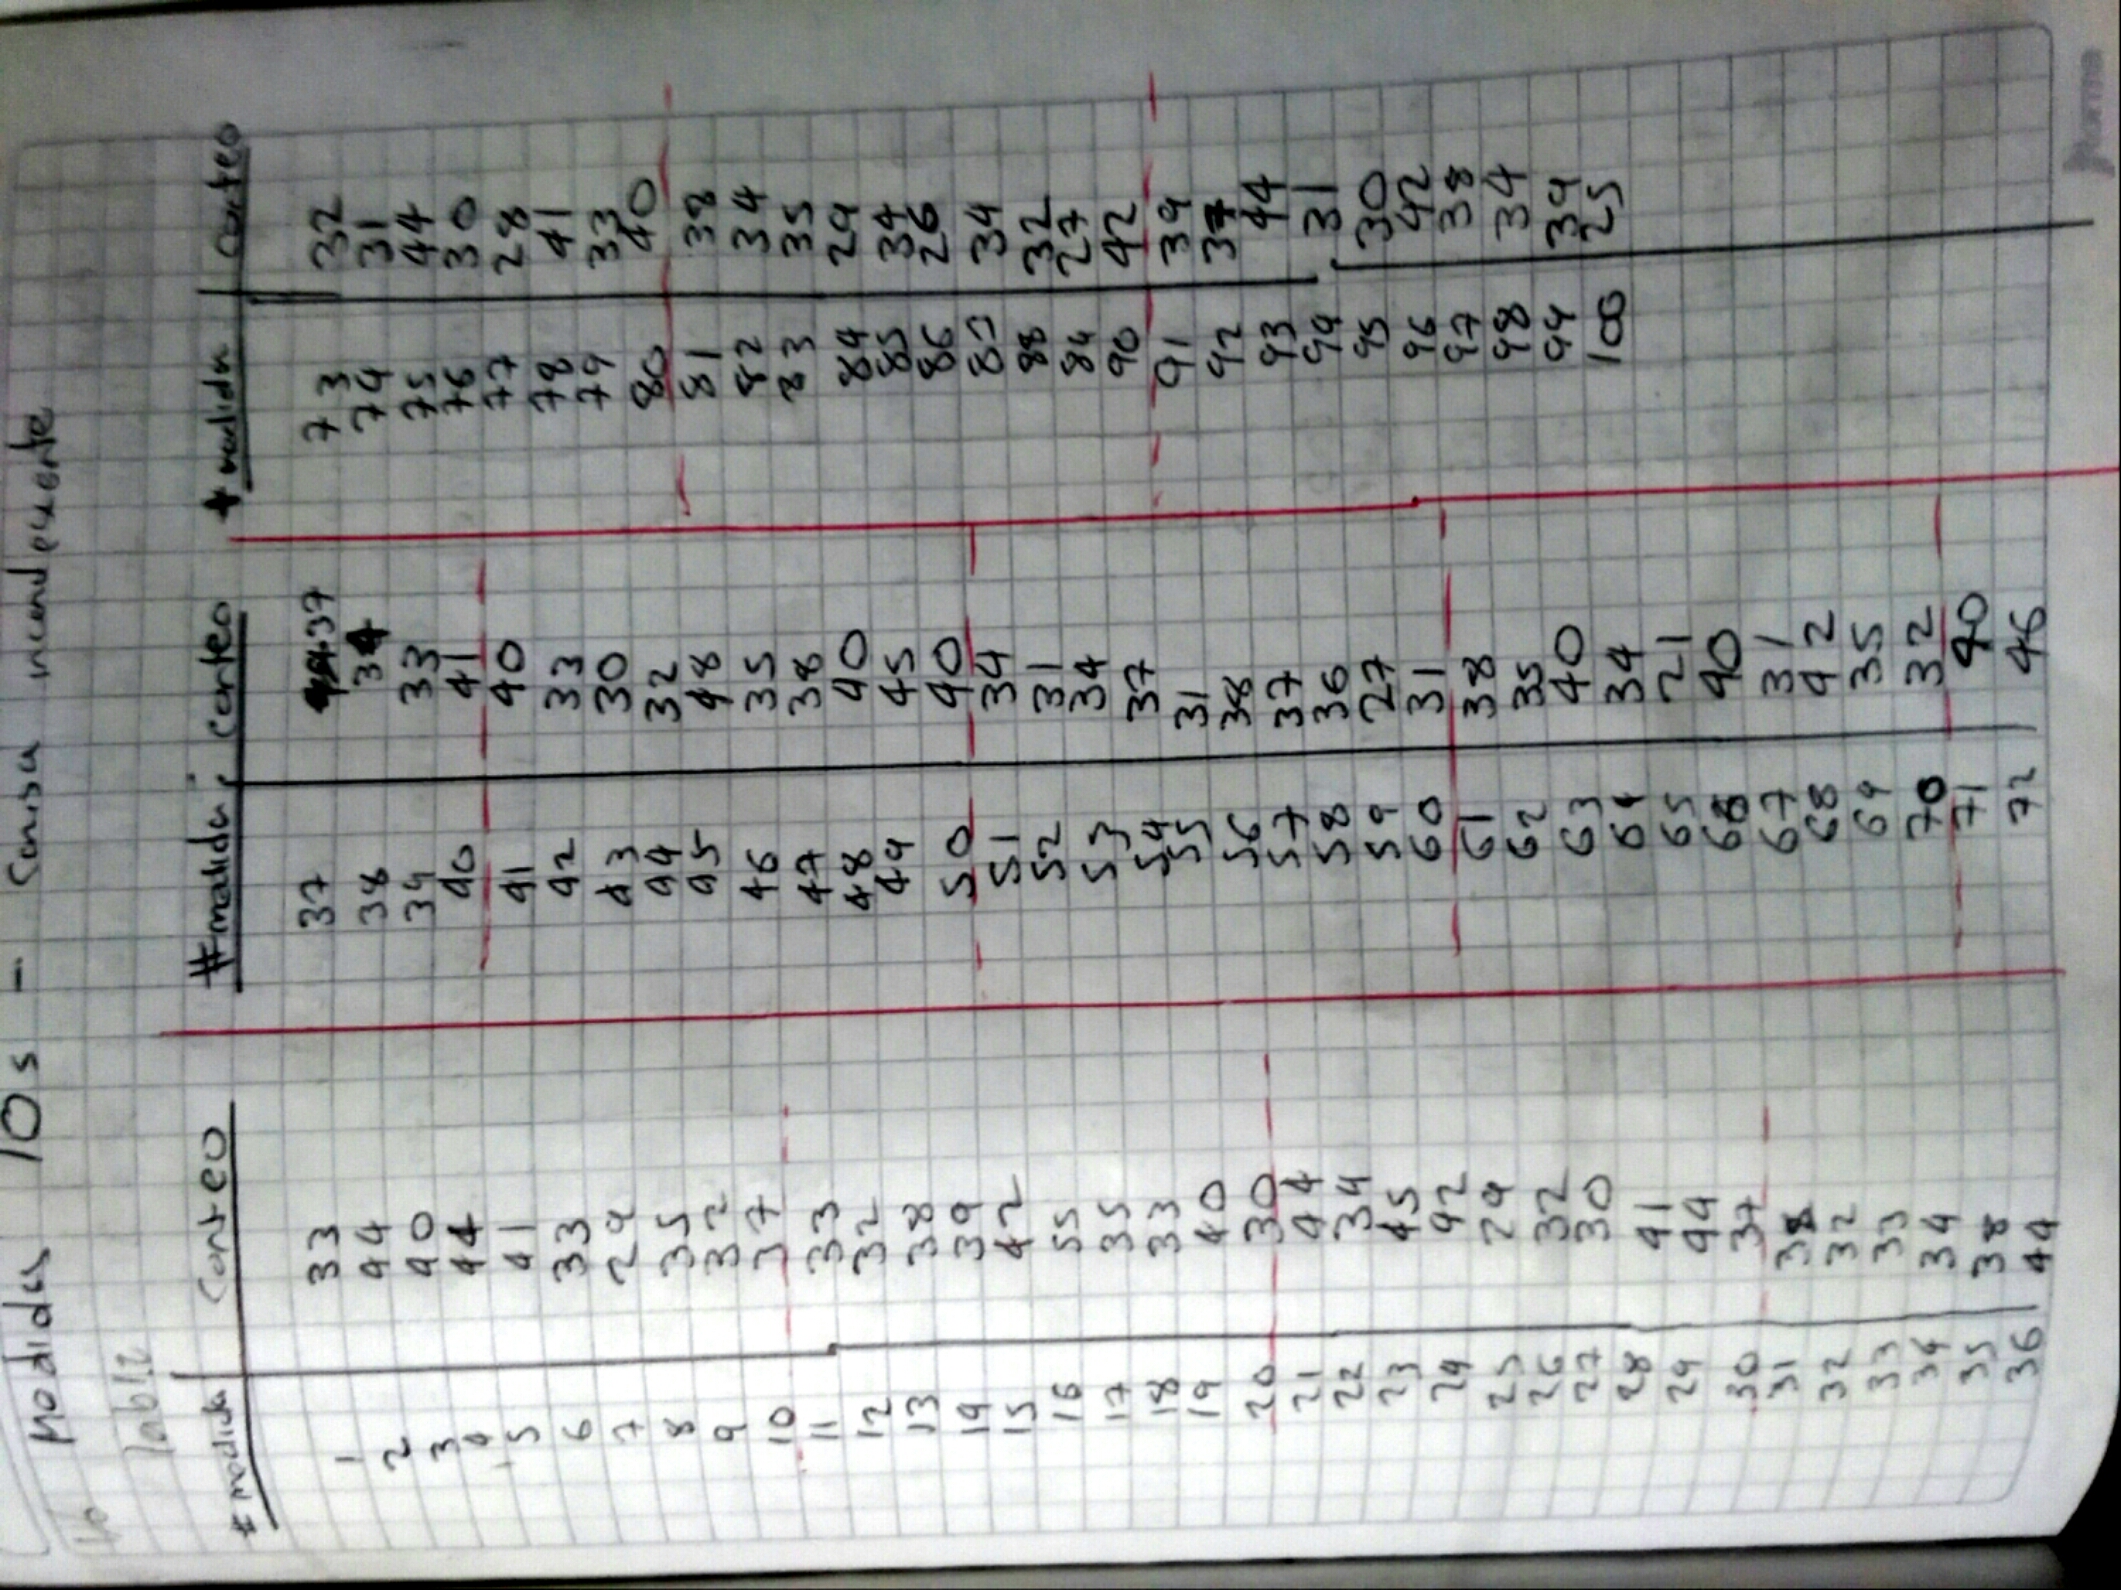 Medidas 10s - Camisa incandecente
Tabla
# medida conteo
1 33
2 44
3 40
4 44
5 41
6 33
7 29
8 35
9 32
10 37
11 33
12 32
13 38
14 39
15 42
16 55
17 35
18 33
19 40
20 30
21 44
22 34
23 45
24 42
25 29
26 32
27 30
28 41
29 44
30 37
31 38
32 32
33 33
34 34
35 38
36 44
# medida conteo
37 37
38 34
39 33
40 41
41 40
42 33
43 30
44 32
45 48
46 35
47 38
48 40
49 45
50 40
51 34
52 31
53 34
54 37
55 31
56 38
57 37
58 36
59 27
60 31
61 38
62 35
63 40
64 34
65 21
66 40
67 31
68 42
69 35
70 32
71 40
72 46
# medida conteo
73 32
74 31
75 44
76 30
77 28
78 41
79 33
80 40
81 38
82 34
83 35
84 29
85 34
86 26
87 34
88 32
89 27
90 42
91 39
92 37
93 44
94 31
95 30
96 42
97 38
98 34
99 39
100 25